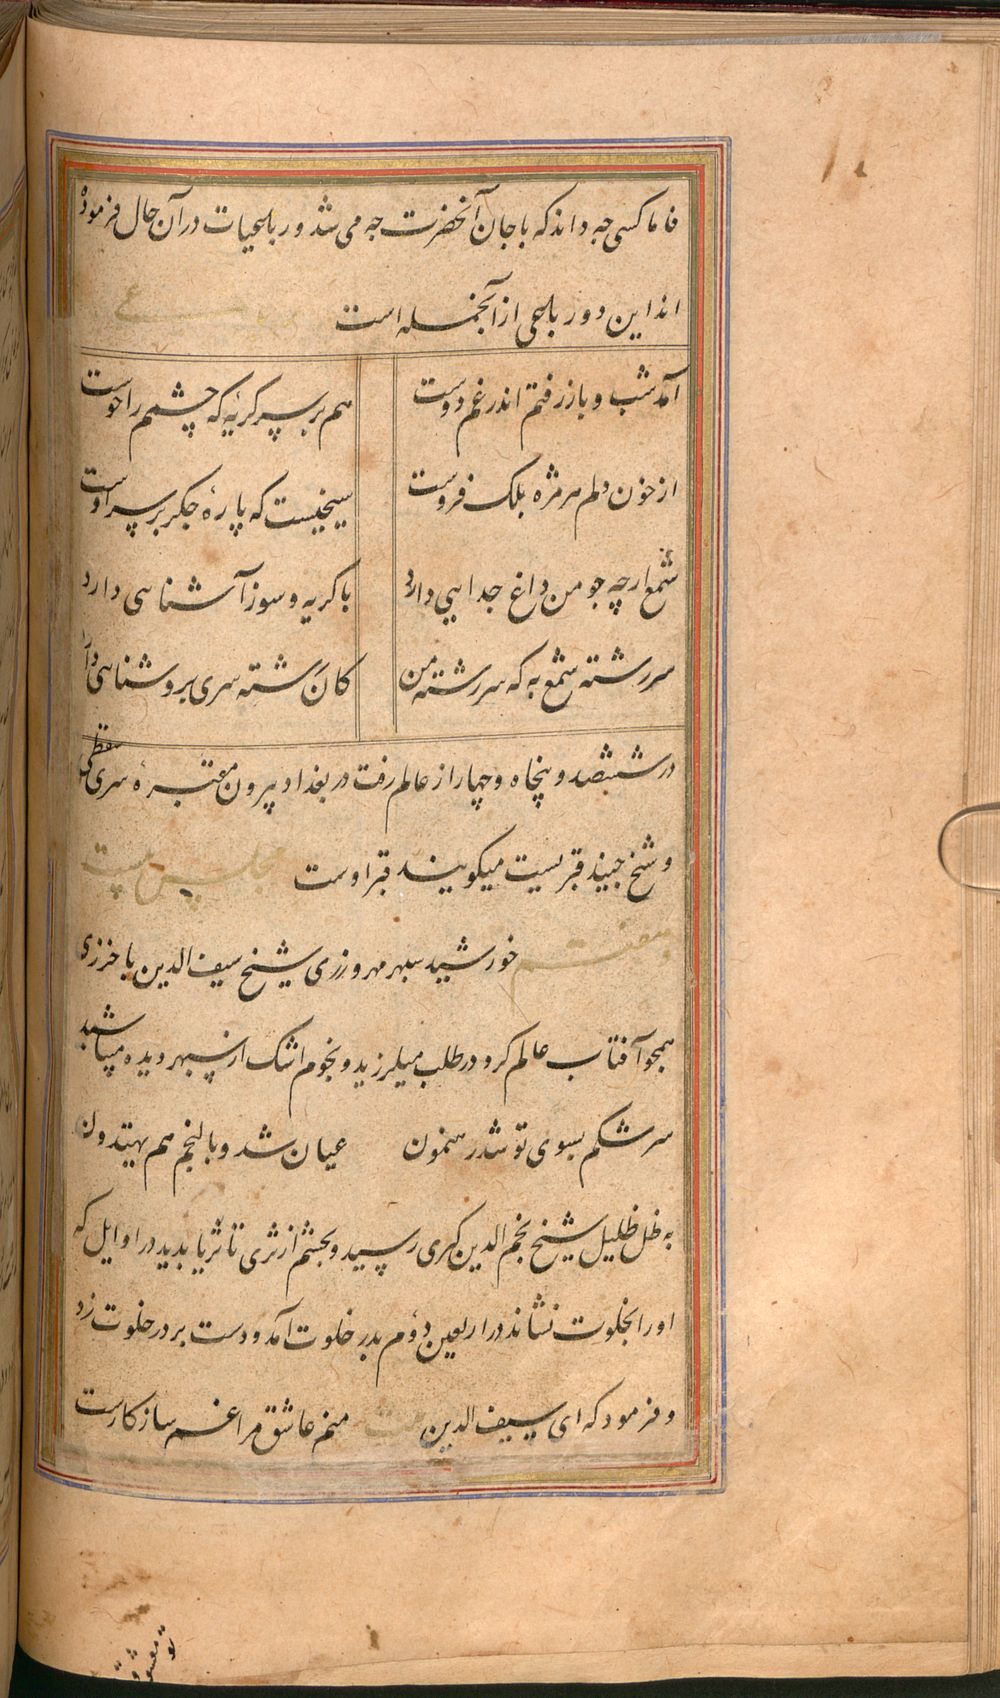 فاما کسی چه داند که با جان آنحضرت چه می شد و رباعیات در آن حال فرموده
اند این دو رباعی از آنجمله است رباعی
آمد شب و باز رفتم اندر غم دوست هم بر سر گریه که چشمم را خوست
از خون دلم هر مژه پلک فروست سیخیست که پاره جگر بر سر اوست
شمع ارچه چو من داغ جدایی دارد با گریه و سوز آشنایی دارد
سررشته شمع به که سررشته من کان رشته سری بروشنایی دارد
در ششصد و پنجاه و چهار از عالم رفت در بغداد بیرون مقبره سری سقطی
و شیخ جنید قبریست میگویند قبر اوست مجلس بیست
و هفتم خورشید سپهر مهرورزی شیخ سیف الدین باخرزی
همچو آفتاب عالم گرد در طلب میلرزید و نجوم اشک از سپهر دیده میپاشید
سرشکم بسوی تو شد رهنمون عیان شد و بالنجم هم یهتدون
به ظل ظلیل شیخ نجم الدین کبری رسید و بچشم از ثری تا ثریا بدید در اوایل که
او را بخلوت نشاند در اربعین دوم بدر خلوت آمد و دست بر در خلوت زد
و فرمود که ای سیف الدین بیت منم عاشق مرا غم سازگارست
تو معشوقی